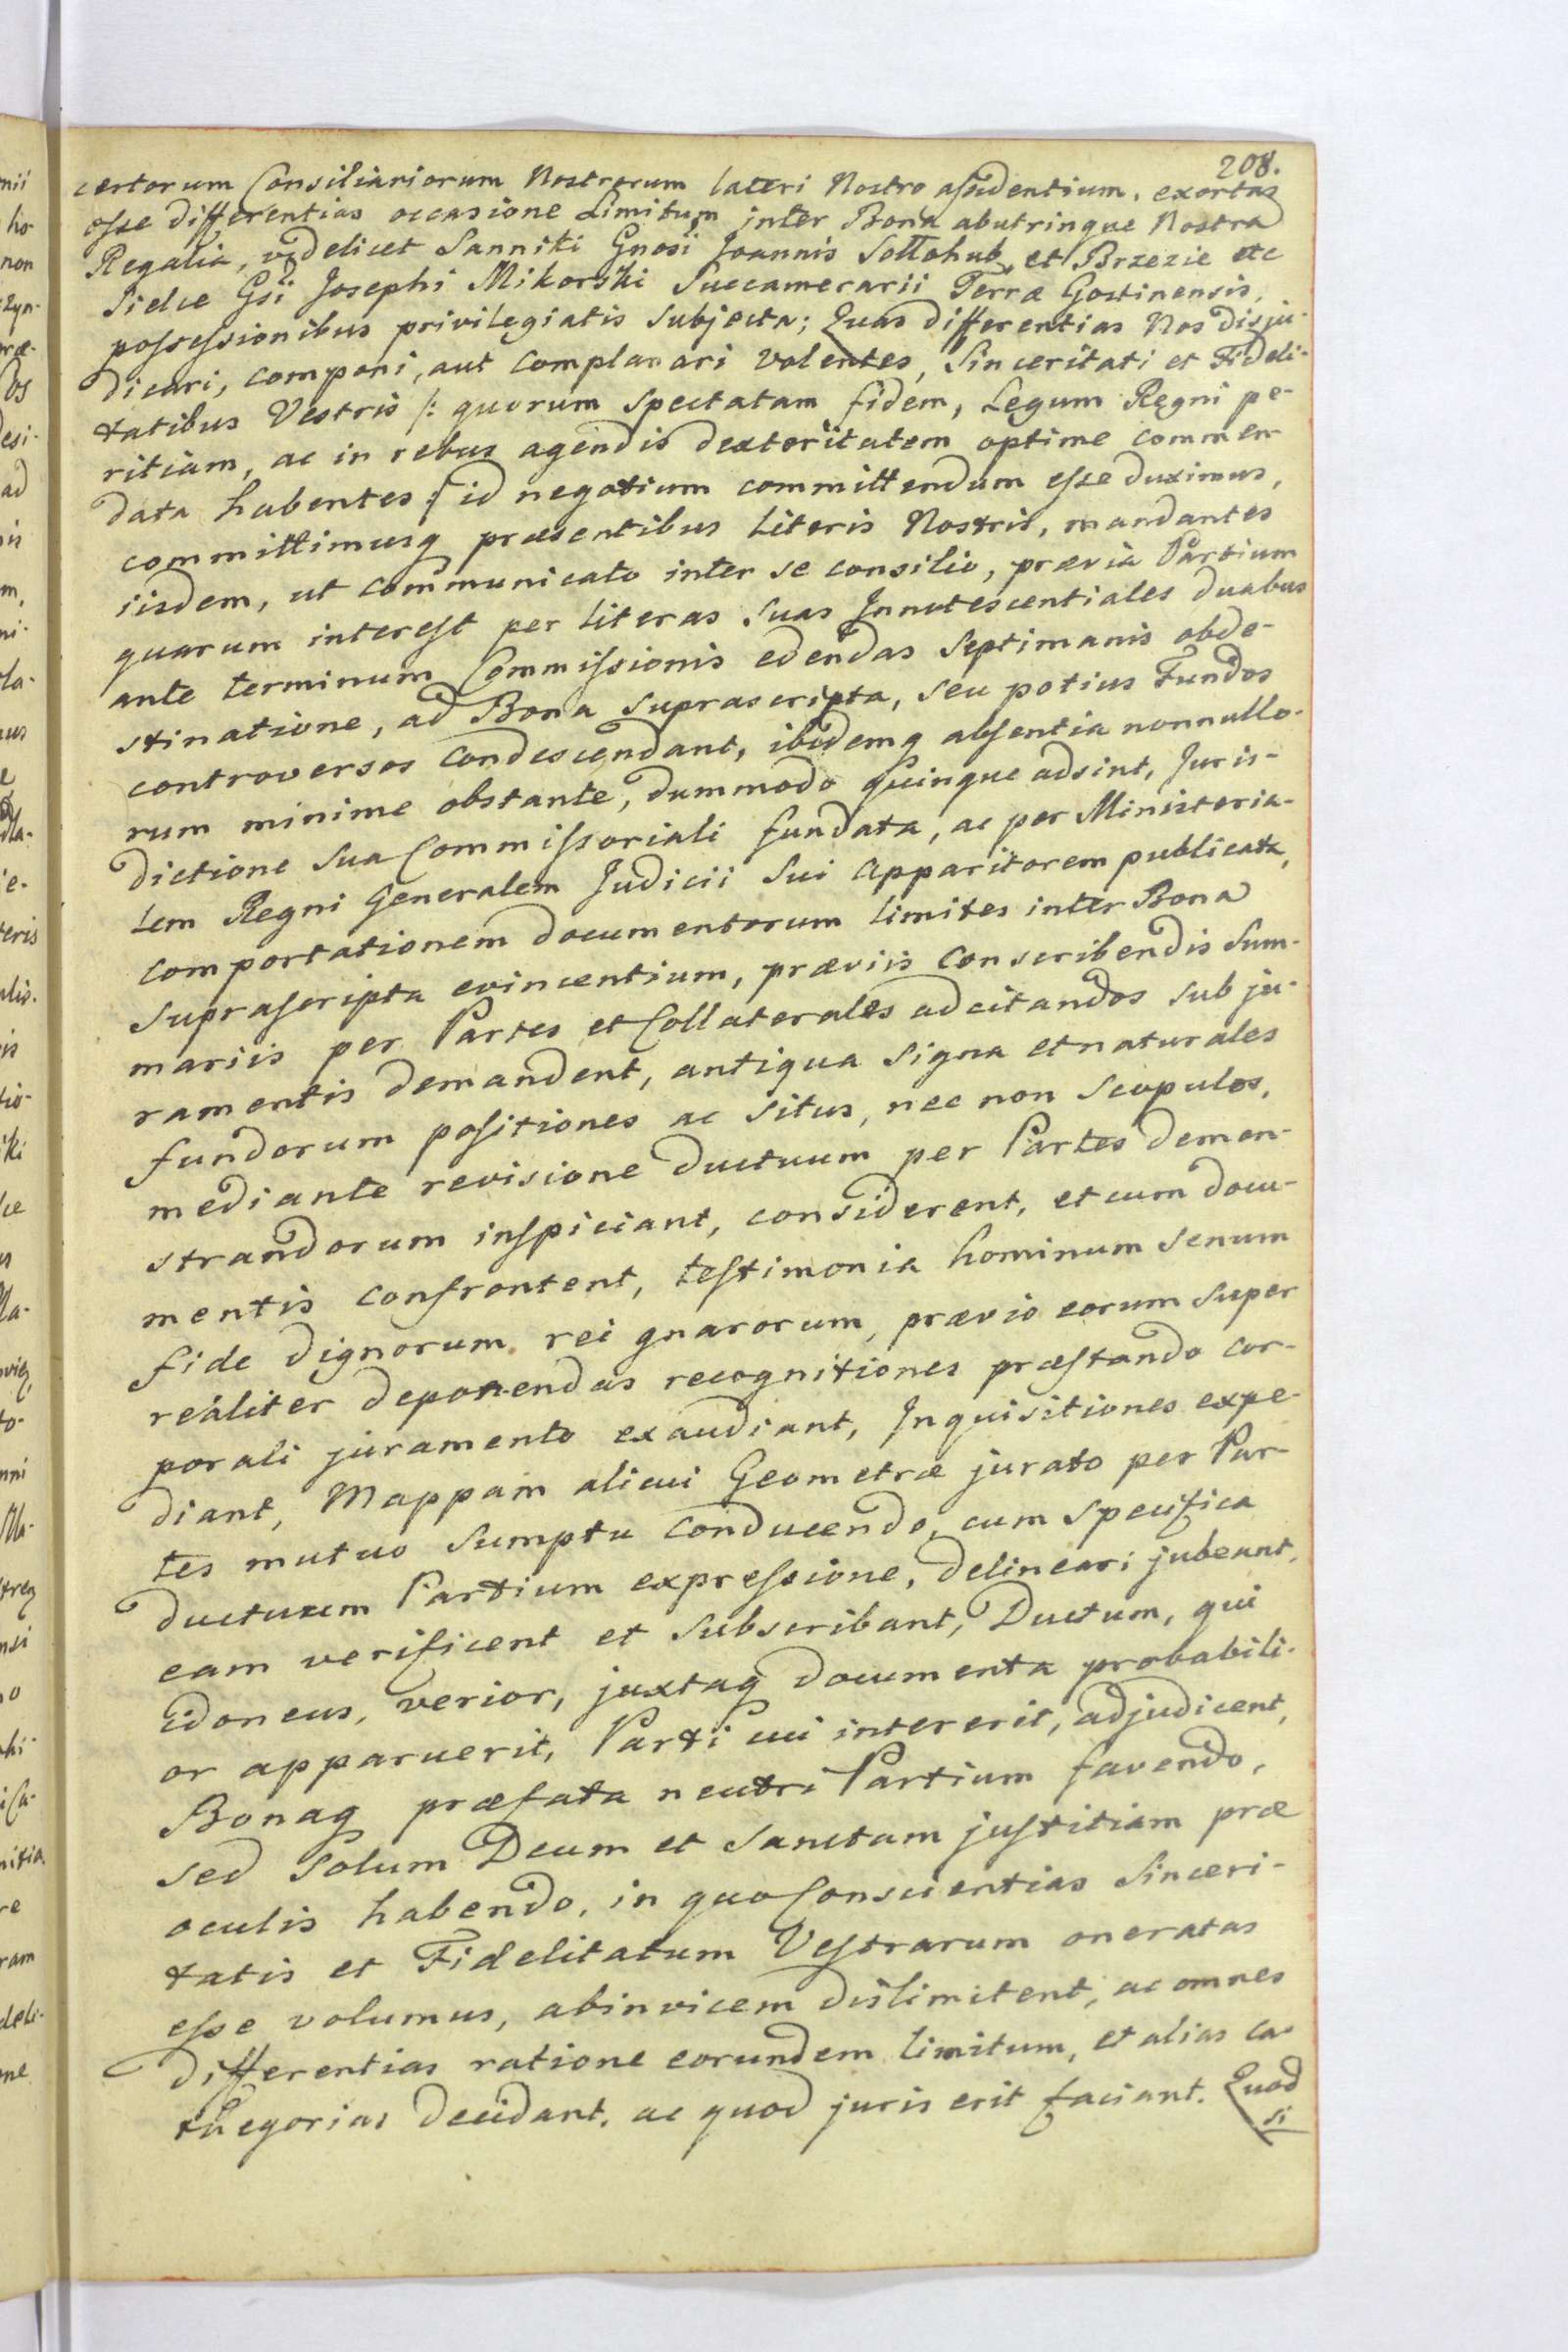 208.
certorum Consiliariorum Nostrorum lateri Nostro assidentium, exortas
esse differentias occasione Limitum inter Bona abutrinque Nostra
Regalia, videlicet Sanniki Gnosi Joannis Sollohub, et Brzezie etc
Sielce Gsi Josephi Mikorski Succamerarii Terræ Gostinensis,
possessionibus privilegiatis subjecta; Quas differentias Nos disju-
dicari, componi, aut complanari volentes, Sinceritati et Fideli-
tatibus Vestris /: quorum spectatam fidem, Legum Regni pe-
ritiam, ac in rebus agendis dexteritatem optime commen
data habentes :/ id negotium committendum esse duximus,
committimusq præsentibus Literis Nostris, mandantes
iisdem, ut communicato inter se consilio, prævia Partium
quarum interest per Literas suas Innotescentiales duabus
ante terminum Commissionis edendas Septimanis obde-
stinatione, ad Bona suprascripta, seu potius Fundos
controversos condescendant, ibidemq absentia nonnullo-
rum minime obstante, dummodo quinque adsint, Juris-
dictione sua Commissoriali fundata, ac per Ministeria-
lem Regni Generalem Judicii sui Apparitorem publicata,
comportationem documentorum limites inter Bona
suprascripta evincentium, præviis conscribendis Sum-
mariis per Partes et Collaterales adcitandos sub ju-
ramentis demandent, antiqua signa et naturales
fundorum positiones ac situs, nec non scopulos,
mediante revisione ductuum per Partes demon-
strandorum inspiciant, considerent, et cum docu-
mentis confrontent, testimonia hominum senum
fide dignorum rei gnarorum, prævio eorum super
realiter deponendas recognitiones præstando cor-
porali juramento exaudiant, Inquisitiones expe-
diant, Mappam alicui Geometræ jurato per Par-
tes mutuo sumptu conducendo, cum specifica
ductuum Partium expressione, delineari jubeant,
eam verificent et subscribant, Ductum, qui
idoneus, verior, juxtaq documenta probabili-
or apparuerit, Parti cui intererit, adjudicent,
Bonaq præfata neutri Partium favendo,
sed solum Deum et sanctam justitiam præ
oculis habendo, in quo Conscientias Sinceri-
tatis et Fidelitatum Vestrarum oneratas
esse volumus, abinvicem dislimitent, ac omnes
differentias ratione eorundem limitum, et alias ca-
thegorias decidant, ac quod juris erit faciant. Quod
si